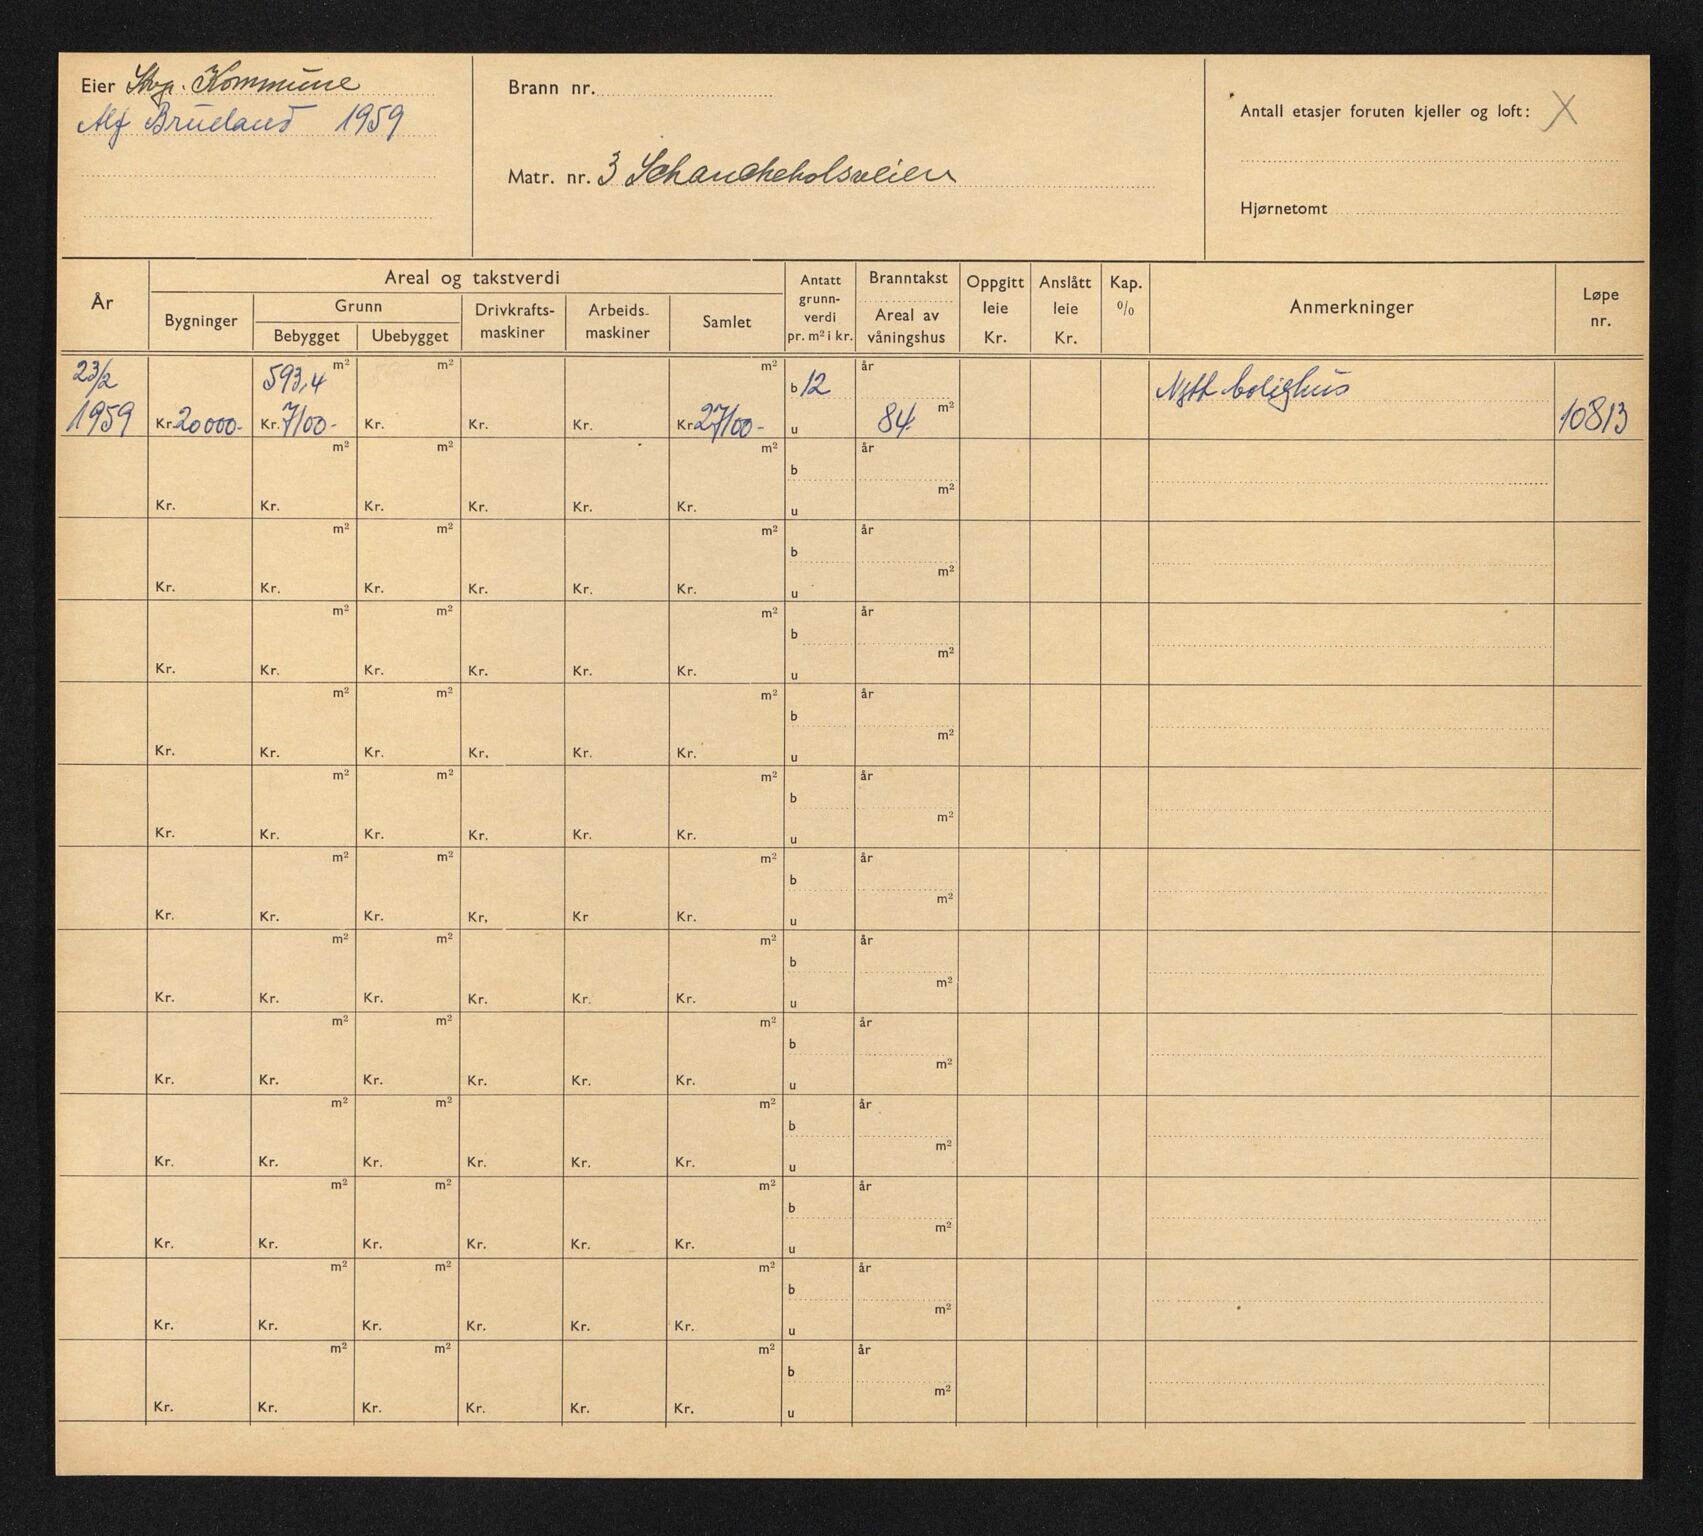 Eier Svg. Kommune
Alf Brueland 1959
Brann nr.
Matr. nr. 3 Schancheholsveien
Antall etasjer foruten kjeller og loft: X
Hjørnetomt
År
Areal og takstverdi
Bygninger
Grunn
Bebygget
Ubebygget
Drivkrafts-
maskiner
Arbeids-
maskiner
Samlet
Antatt
grunn-
verdi
pr. m² i kr.
Branntakst
Areal av
våningshus
Oppgitt
leie
Kr.
Anslått
leie
Kr.
Kap.
%
Anmerkninger
Løpe
nr.
23/2 593,4 m² m² m² b 12 år Nytt bolighus
1959 Kr. 20000- Kr. 7100- Kr. Kr. Kr. Kr. 27100- u 84 m² 10813
m² m² m² b år
Kr. Kr. Kr. Kr. Kr. Kr. u m²
m² m² m² b år
Kr. Kr. Kr. Kr. Kr. Kr. u m²
m² m² m² b år
Kr. Kr. Kr. Kr. Kr. Kr. u m²
m² m² m² b år
Kr. Kr. Kr. Kr. Kr. Kr. u m²
m² m² m² b år
Kr. Kr. Kr. Kr. Kr. Kr. u m²
m² m² m² b år
Kr. Kr. Kr. Kr, Kr Kr. u m²
m² m² m² b år
Kr. Kr. Kr. Kr. Kr. Kr. u m²
m² m² m² b år
Kr. Kr. Kr. Kr. Kr. Kr. u m²
m² m² m² b år
Kr. Kr. Kr. Kr. Kr. Kr. u m²
m² m² m² b år
Kr. Kr. Kr. Kr. Kr. Kr. u m²
m² m² m² b år
Kr. Kr. Kr. Kr. Kr. Kr. u m²
m² m² m² b år
Kr. Kr. Kr. Kr. Kr. Kr. u m²